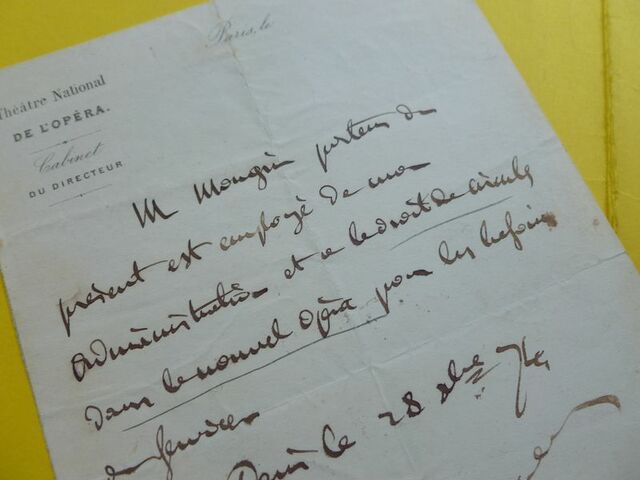 Théâtre National
DE L'OPÉRA.
Cabinet
DU DIRECTEUR
Paris, le
M Mongin porteur du
présent est employé de mon
administration et a le droit de circuler
dans le nouvel opéra pour les besoins
du service
Paris le 28 Xbre 74